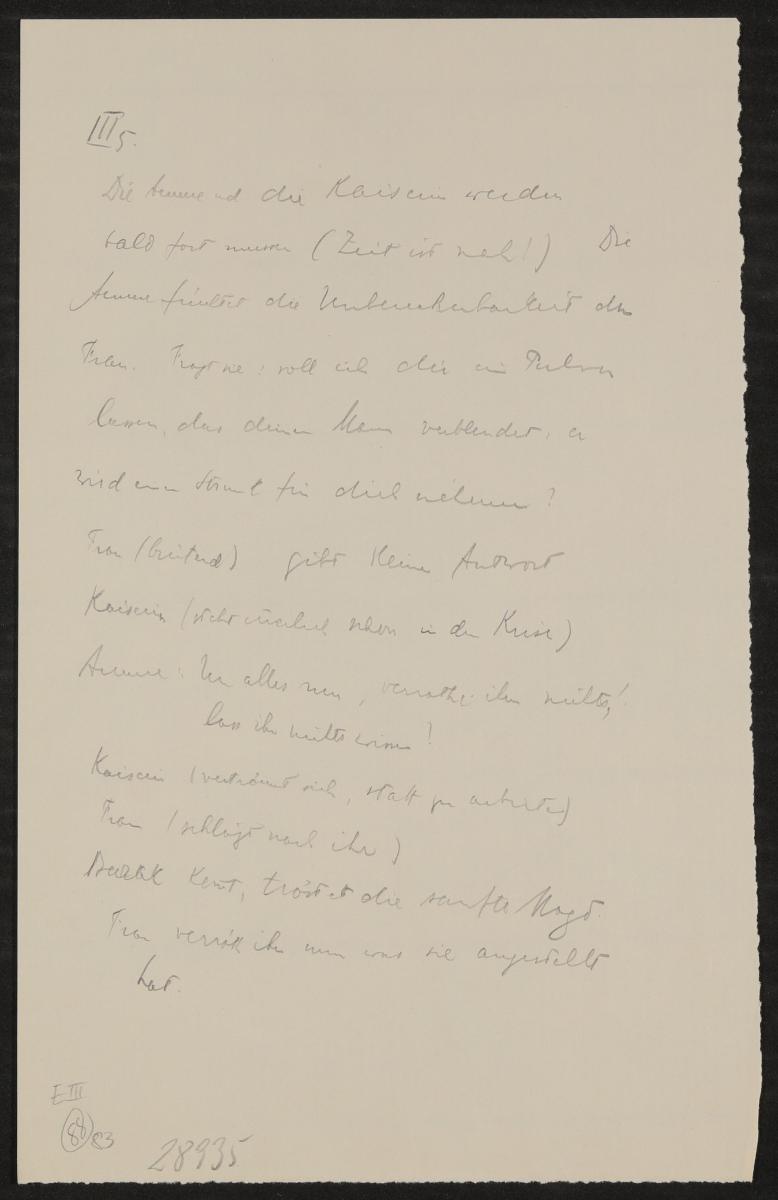 III 5.
Die Amme und die Kaiserin werden
bald fort müssen (Zeit ist nah!) Die
Amme fürchtet die Unberechenbarkeit der
Frau. Fragt sie: soll ich dir ein Pulver
lassen, das deinen Mann verblendet, er
wird einen Strunk für dich nehmen?
Frau (brütend) gibt keine Antwort
Kaiserin (steht innerlich schon in der Krise)
Amme: Um alles nun, verrathe ihm nichts!
lass ihn nichts wissen!
Kaiserin (verträumt sich, statt zu arbeiten)
Frau (schlägt nach ihr)
Barak kommt, tröstet die sanfte Magd.
Frau verräth ihm nun was sie angestellt
hat.
E III
88 83
28935